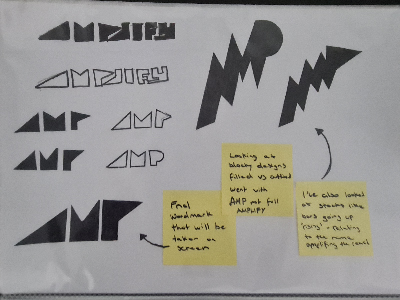 AMPLIFY
AMPLIFY
AMP AMP
AMP AMP
AMP
AMP
AMP
Final
Wordmark
that will be
taken on
screen
Looking at
blocky designs
filled vs outlined
went with
AMP not full
AMPLIFY
I've also looked
at
like
bars going up
'rising' - relating
to the name
amplifying the